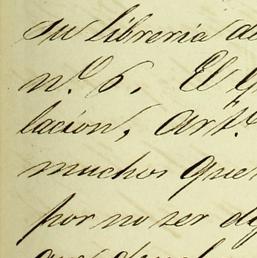 su libreria
n.º 6. El
lacion, Art.º
muchos que
por no ser